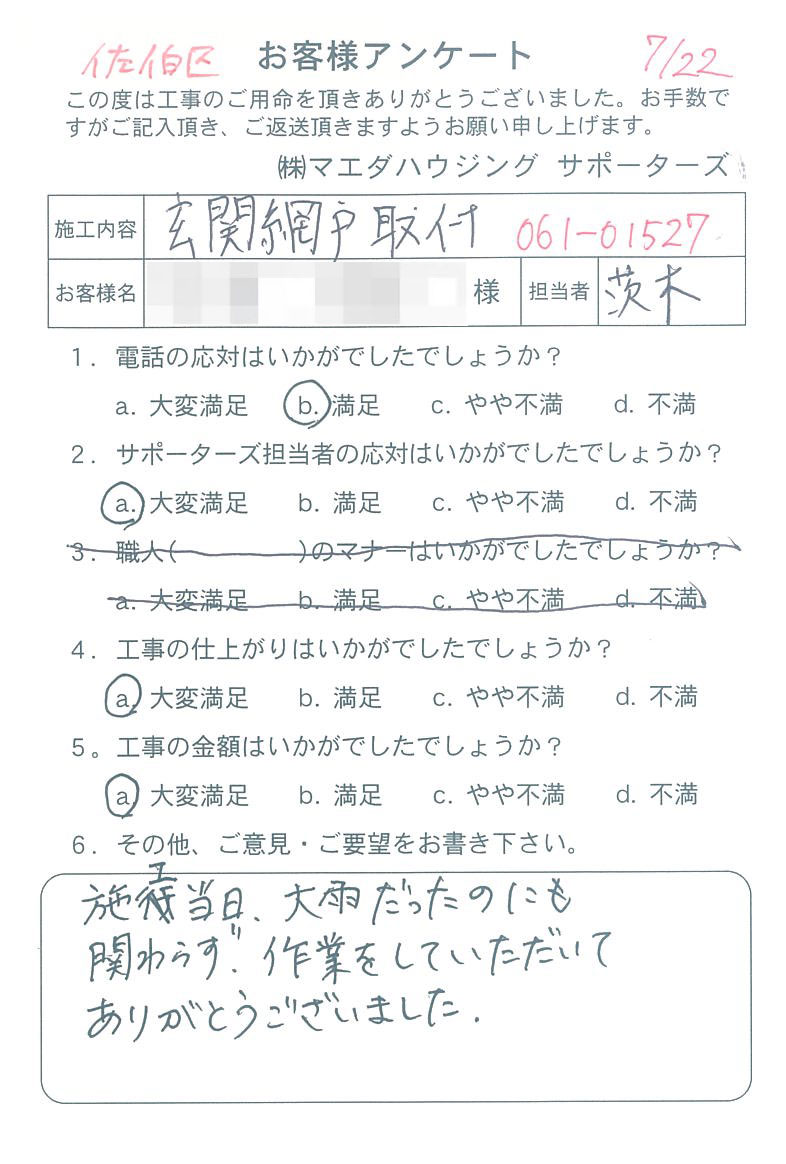 佐伯区 お客様アンケート 7/22
この度は工事のご用命を頂きありがとうございました。お手数で
すがご記入頂き、ご返送頂きますようお願い申し上げます。
㈱マエダハウジング サポーターズ
施工内容 玄関網戸取付 061-01527
お客様名 様 担当者 茨木
1. 電話の応対はいかがでしたでしょうか？
a. 大変満足 b. 満足 c. やや不満 d. 不満
2. サポーターズ担当者の応対はいかがでしたでしょうか？
a. 大変満足 b. 満足 c. やや不満 d. 不満
3. 職人( )のマナーはいかがでしたでしょうか？
a. 大変満足 b. 満足 c. やや不満 d. 不満
4. 工事の仕上がりはいかがでしたでしょうか？
a. 大変満足 b. 満足 c. やや不満 d. 不満
5。工事の金額はいかがでしたでしょうか？
a. 大変満足 b. 満足 c. やや不満 d. 不満
6. その他、ご意見・ご要望をお書き下さい。
施工当日、大雨だったのにも
関わらず、作業をしていただいて
ありがとうございました.